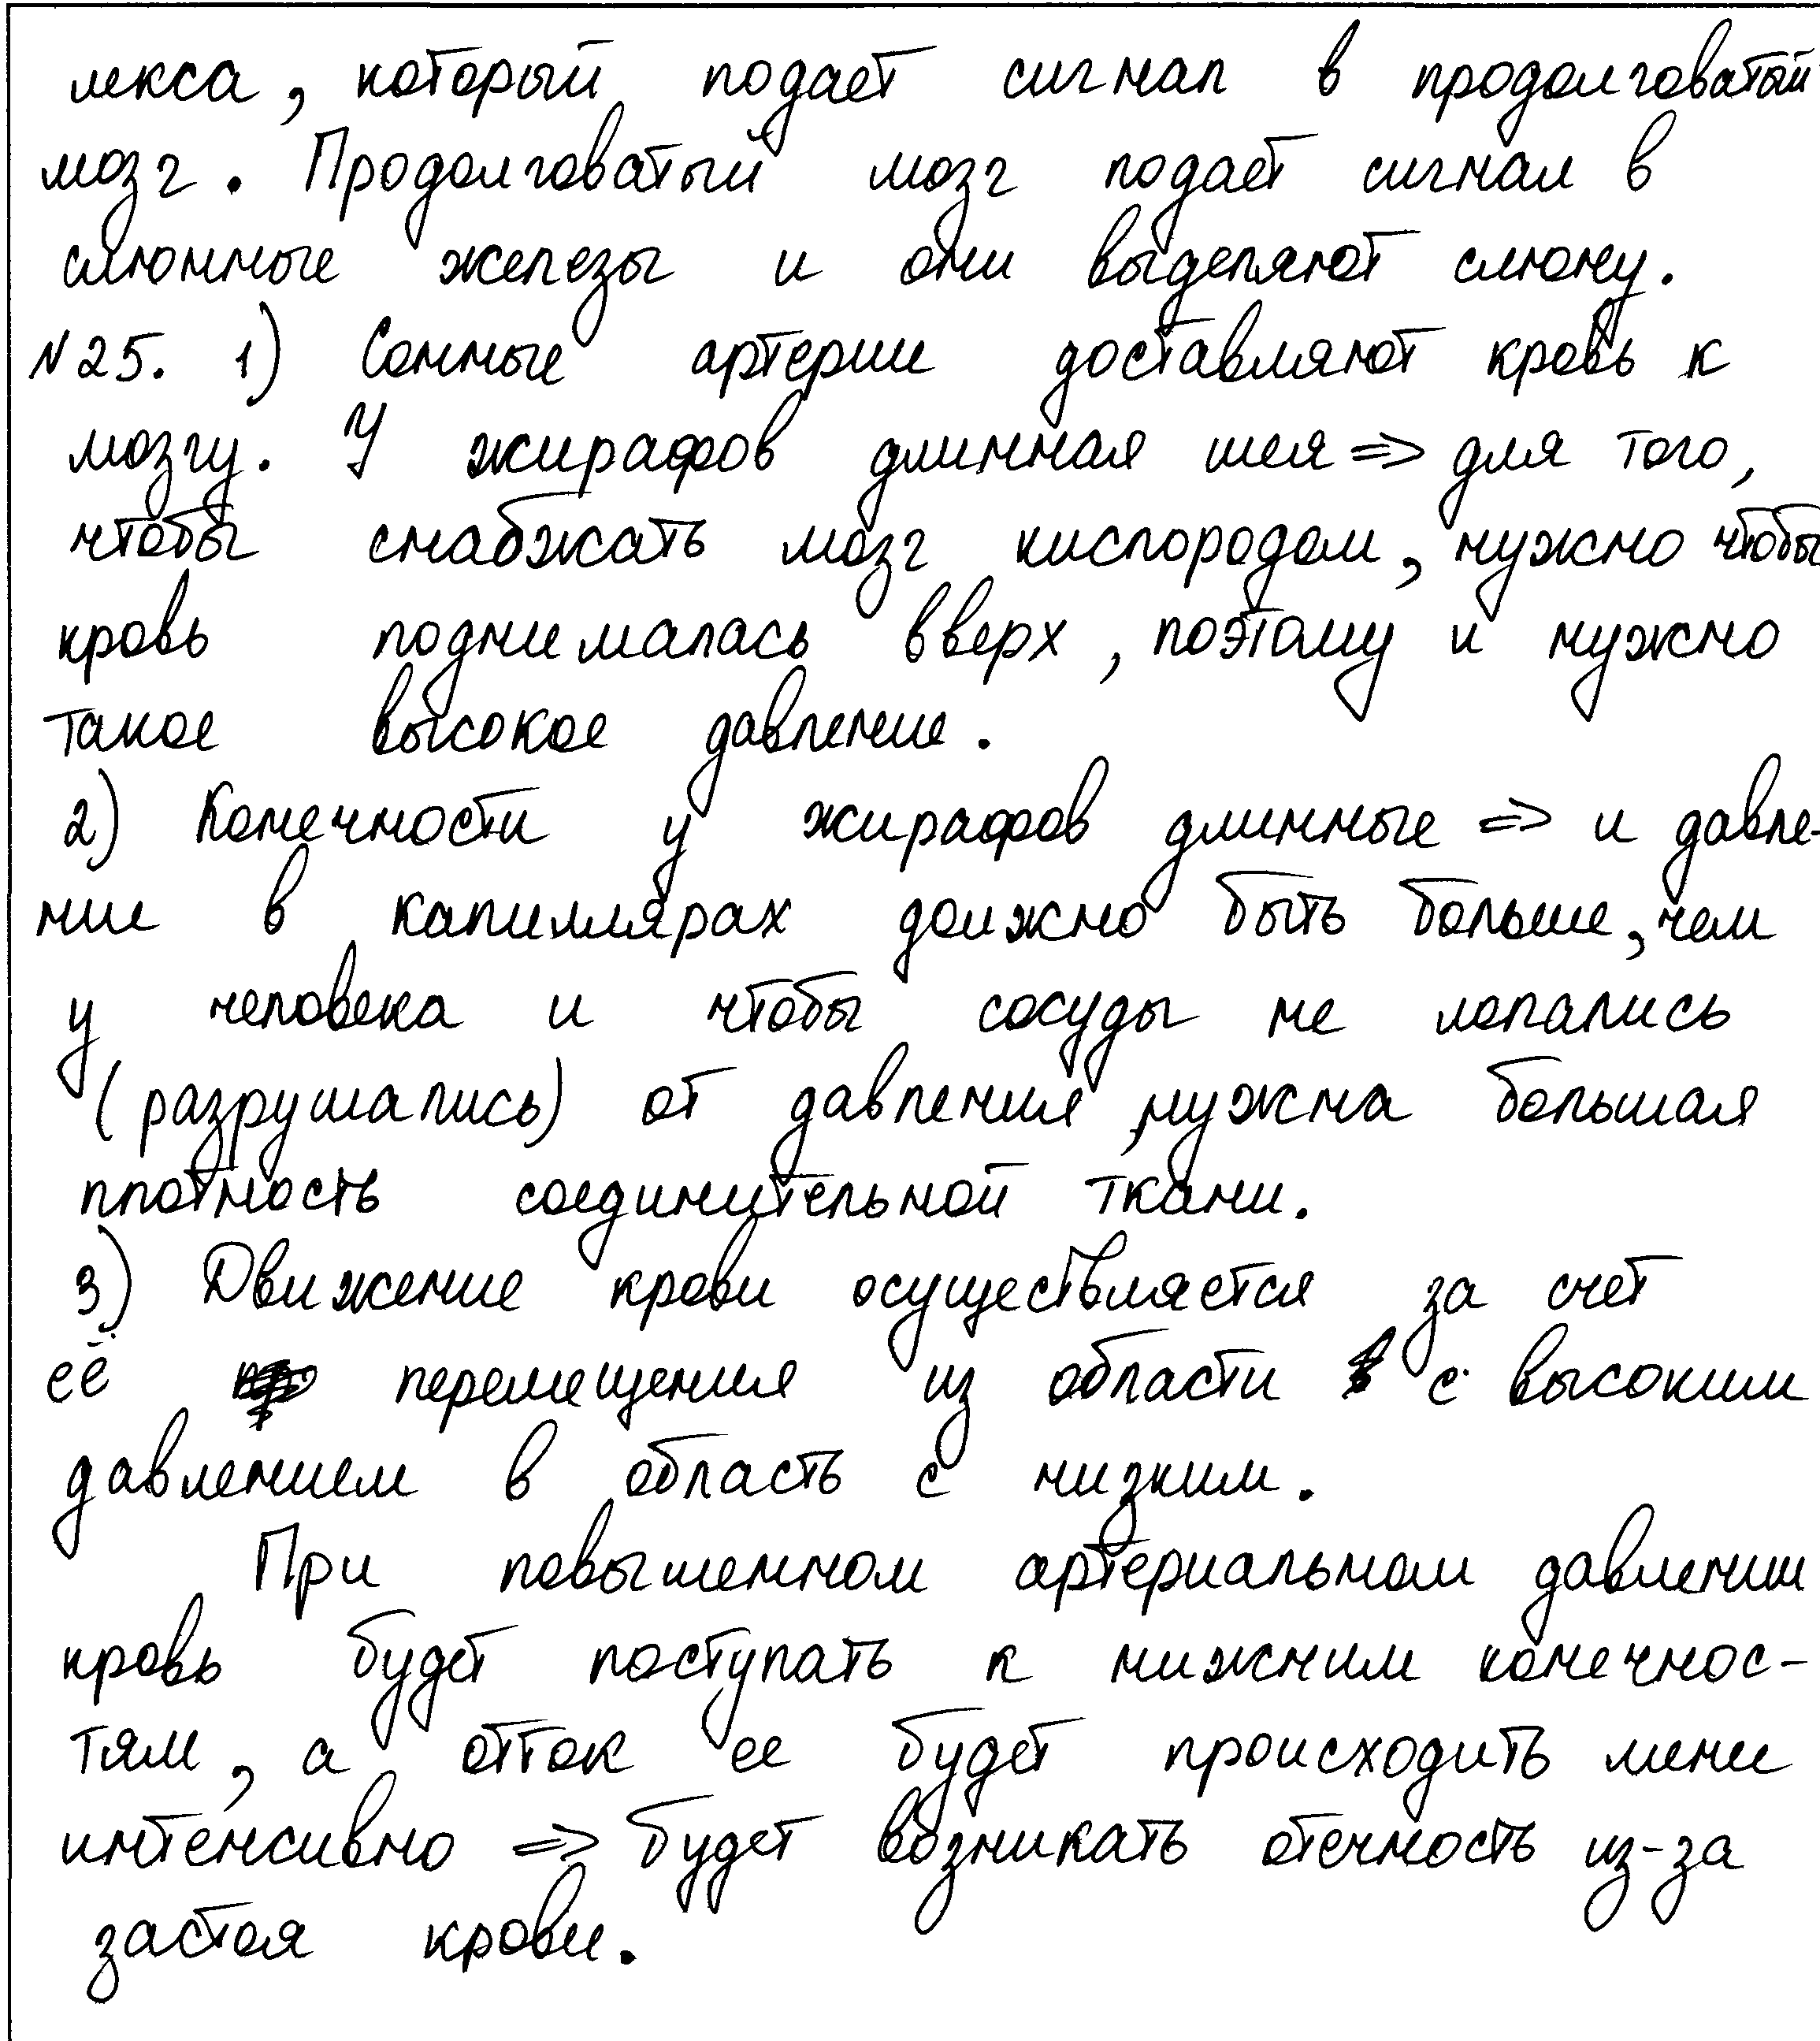 лекса, который подает сигнал в продолговатый
мозг. Продолговатый мозг подает сигнал в
слюнные железы и они выделяют слюну.
№25. 1) Сонные артерии доставляют кровь к
мозгу. У жирафов длинная шея => для того,
чтобы снабжать мозг кислородом, нужно чтобы
кровь поднималась вверх, поэтому и нужно
такое высокое давление.
2) Конечности у жирафов длинные => и давле-
ние в капиллярах должно быть больше, чем
у человека и чтобы сосуды не лопались
(разрушались) от давления, нужна большая
плотность соединительной ткани.
3) Движение крови осуществляется за счет
её перемещения из области с высоким
давлением в область с низким.
При повышенном артериальном давлении
кровь будет поступать к нижним конечнос-
тям, а отток ее будет происходить мене
интенсивно => будет возникать отечность из-за
застоя крови.